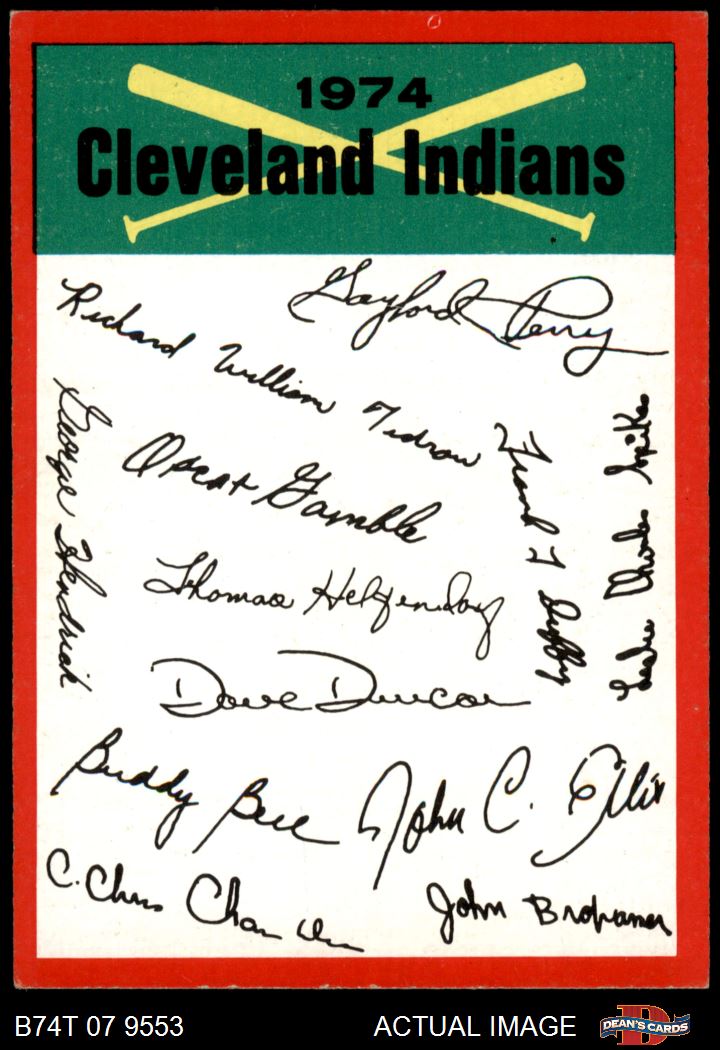 1974
Cleveland Indians
Gaylord Perry
Richard William Tidrow
George Hendrick
Oscar Gamble
Frank T Duffy
Leslie Charles Spikes
Thomas Hilgendorf
Dave Duncan
Buddy Bell
John C. Ellis
C. Chris Cham
John Brohamer
B74T 07 9553
ACTUAL IMAGE
D
DEAN'S CARDS